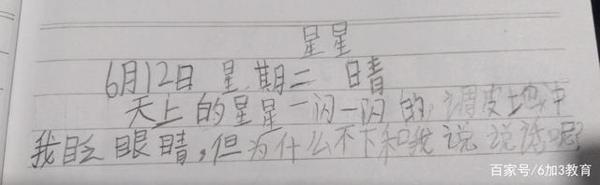 星星
6月12日 星期二 晴
天上的星星一闪一闪的,调皮地冲
我眨眼睛,但为什么不下和我说说话呢?
百家号/6加3教育